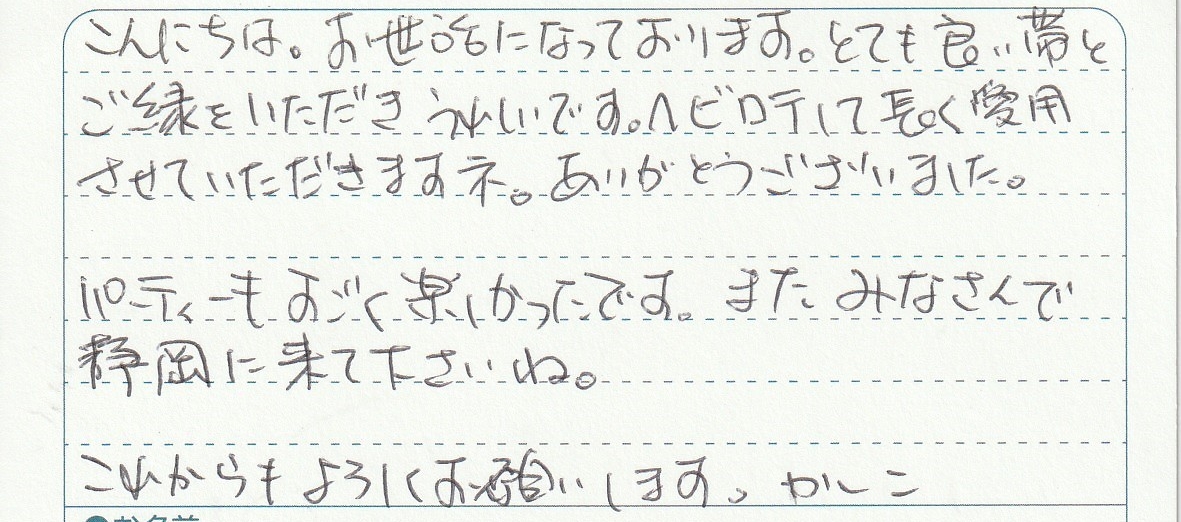 こんにちは。お世話になっております。とても良い帯と
ご縁をいただきうれしいです。ヘビロテして長く愛用
させていただきますネ。ありがとうございました。
パーティーもすごく楽しかったです。またみなさんで
静岡に来て下さいね。
これからもよろしくお願いします。かしこ